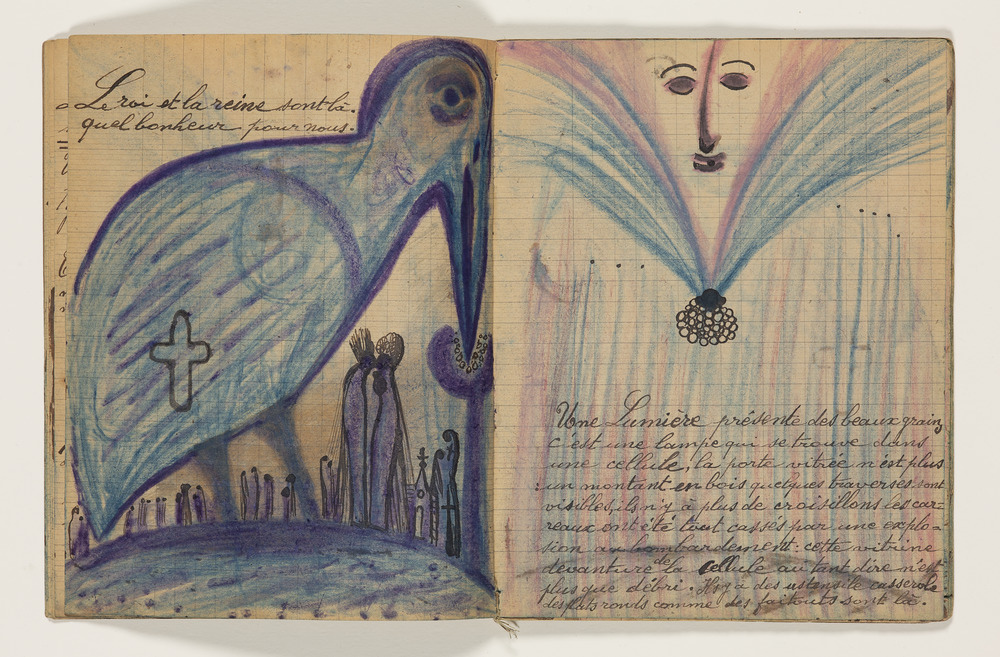 Le roi et la reine sont là.
quel bonheur pour nous.
Une Lumière présente des beaux grains
c'est une lampe qui se trouve dans
une cellule, la porte vitrée n'est plus
un montant en bois quelques traverses sont
visibles, ils n'y à plus de croisillons les car-
reaux ont été tout cassés par une explo-
sion au bombardement: cette vitrine
devanture de la cellule autant dire n'est
plus que débri. Il s'y à des ustensile casserole
des plats ronds comme des faitouts sont là.